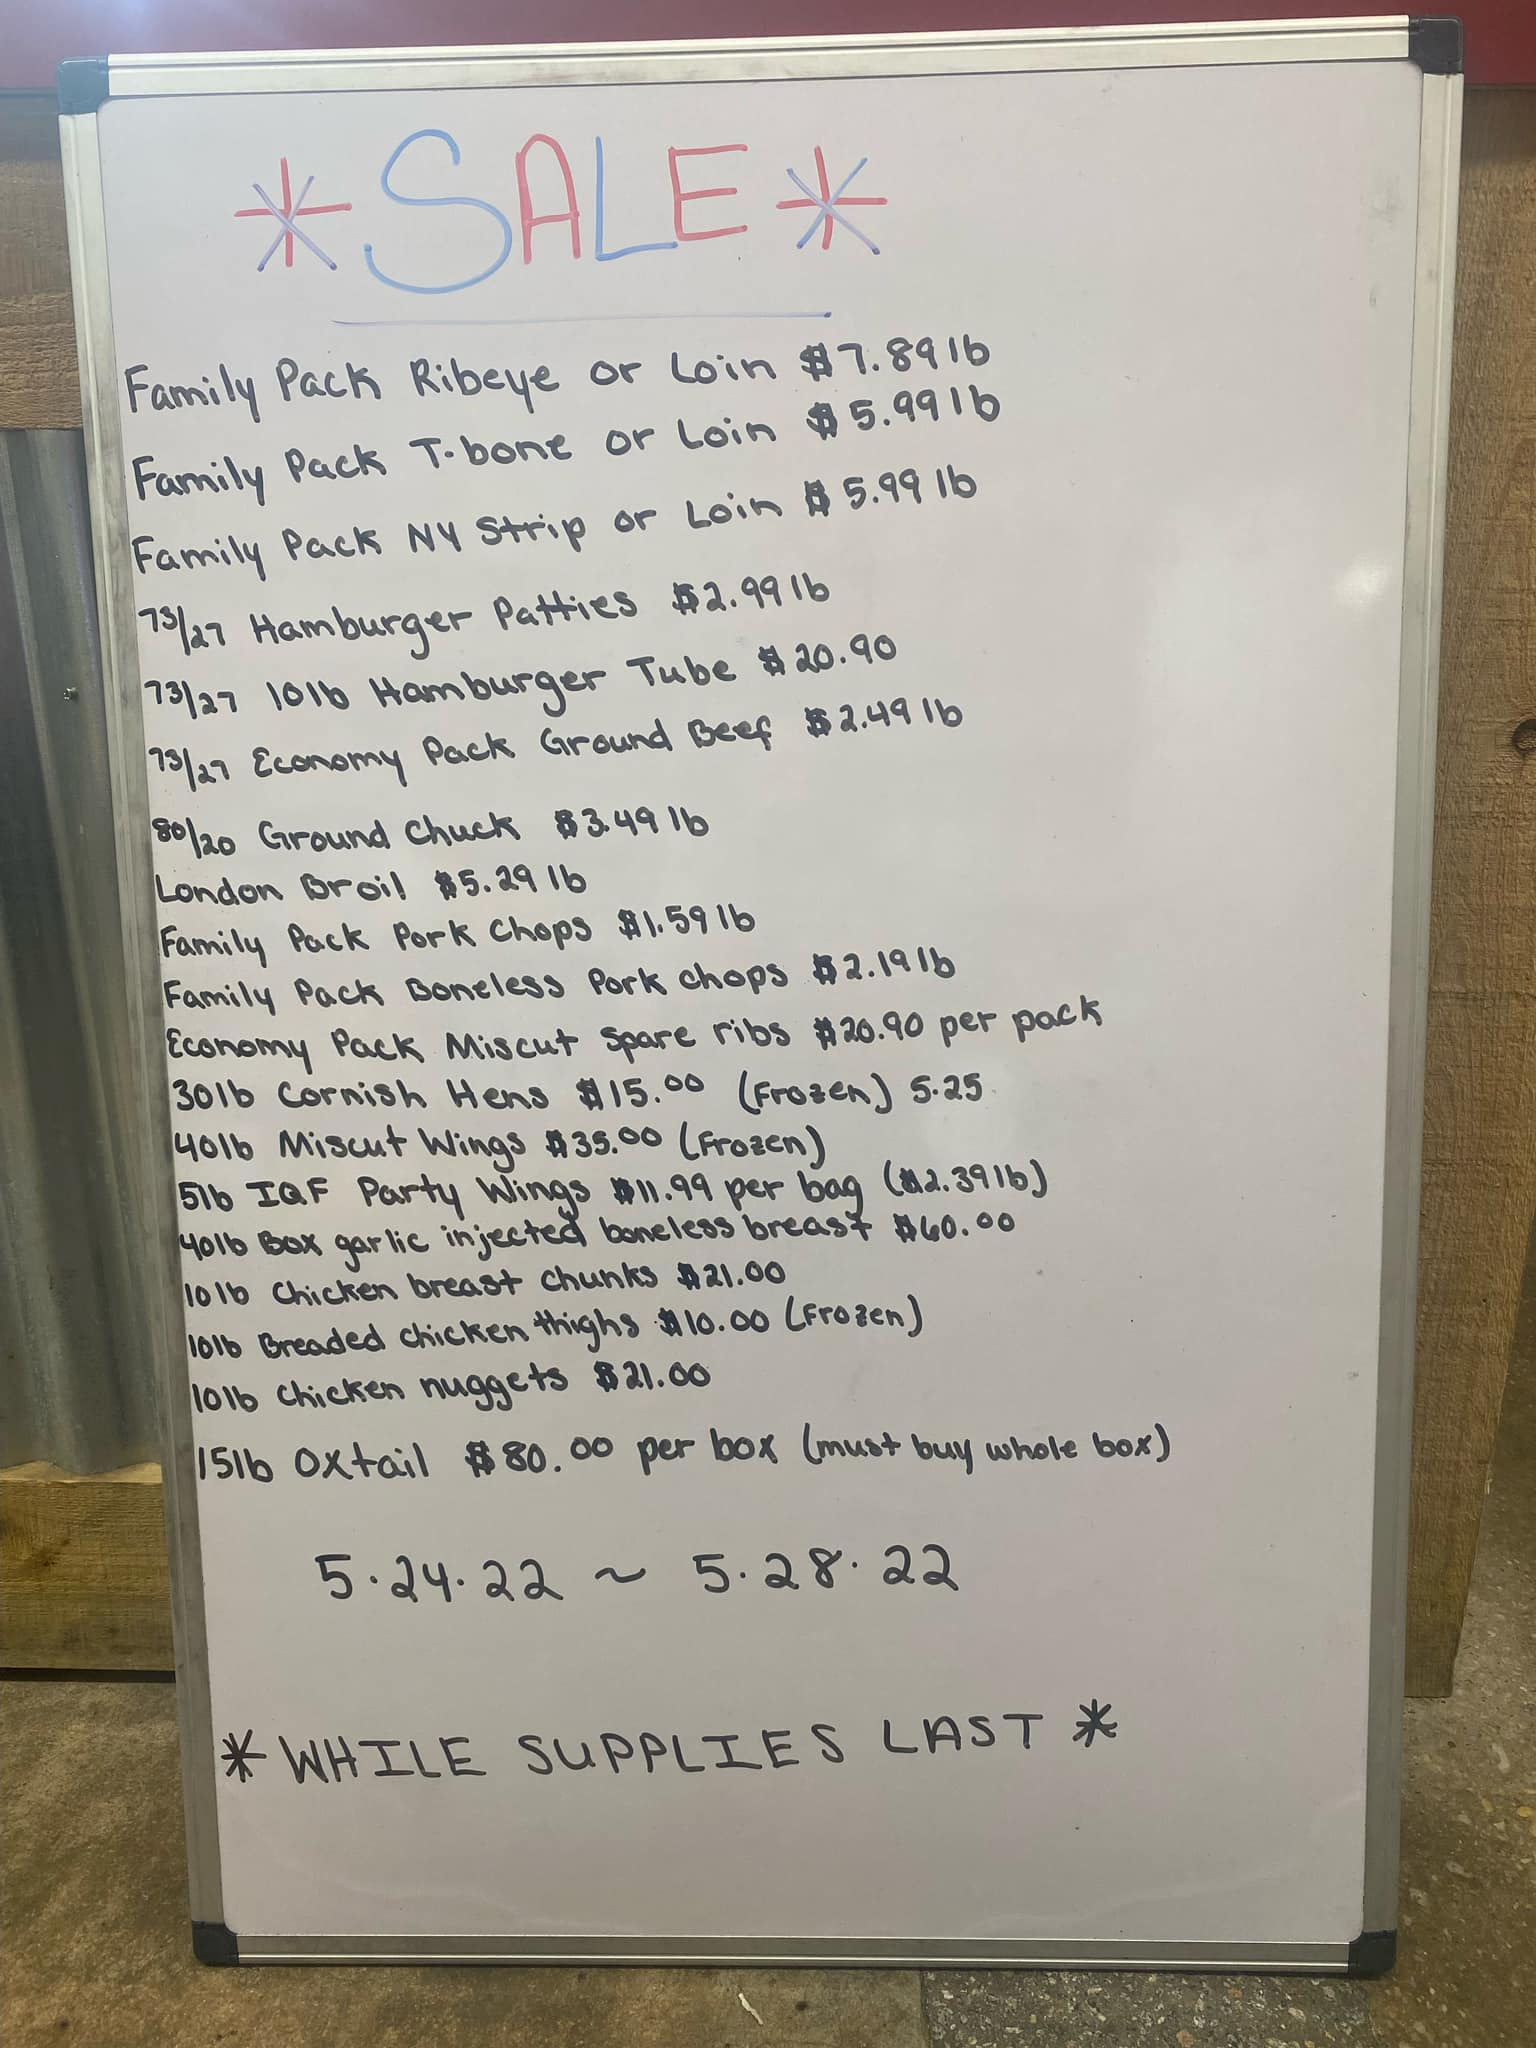 *SALE*
Family Pack Ribeye or Loin $7.89 lb
Family Pack T-bone or Loin $5.99 lb
Family Pack NY Strip or Loin $5.99 lb
73/27 Hamburger Patties $2.99 lb
73/27 10lb Hamburger Tube $20.90
73/27 Economy Pack Ground Beef $2.49 lb
80/20 Ground Chuck $3.49 lb
London Broil $5.29 lb
Family Pack Pork Chops $1.59 lb
Family Pack Boneless Pork chops $2.19 lb
Economy Pack Miscut Spare ribs $20.90 per pack
30lb Cornish Hens $15.00 (Frozen) 5.25
40lb Miscut Wings $35.00 (Frozen)
5lb IQF Party Wings $11.99 per bag ($2.39 lb)
40lb Box garlic injected boneless breast $60.00
10lb Chicken breast chunks $21.00
10lb Breaded chicken thighs $10.00 (Frozen)
10lb Chicken nuggets $21.00
15lb Oxtail $80.00 per box (must buy whole box)
5.24.22 ~ 5.28.22
*WHILE SUPPLIES LAST*